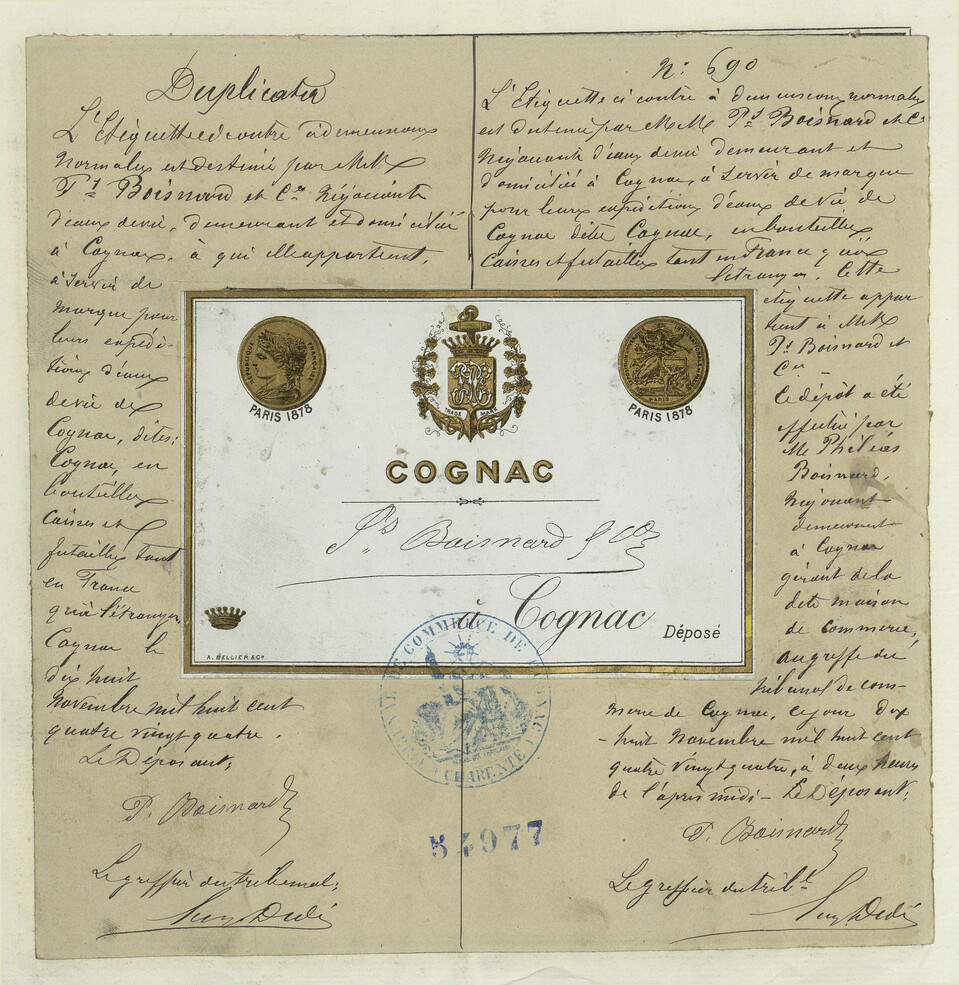 Duplicata
L'Etiquette ci contre à dimensions
normales est destinée par MM
Ps Boisnard et Cie Négociants
d'eaux de vie, demeurant et domicilié
à Cognac, à qui elle appartient,
à servir de
marque pour
leurs expédi-
tions d'eaux
de vie de
Cognac, dites:
Cognac, en
bouteilles
caisses et
futailles tant
en France
qu'à l'étranger,
Cognac le
dix huit
Novembre mil huit cent
quatre vingt quatre.
Le Déposant,
P. Boisnard
Le greffier du tribunal,
N: 690
L'Etiquette ci contre à dimensions normales
est destinée par MM Ps Boisnard et Cie
Négociants d'eaux de vie demeurant et
domiciliés à Cognac, à servir de marque
pour leurs expéditions d'eaux de vie de
Cognac dite Cognac, en bouteilles
caisses et futailles tant en France qu'à
l'étranger. Cette
étiquette appar
tient à MM
Ps Boisnard et
Cie -
Ce dépôt a été
effectué par
M Philéas
Boisnard,
Négociant
demeurant
à Cognac
gérant de la
dite maison
de Commerce,
au greffe du
tribunal de com-
merce de Cognac, ce jour dix
-huit Novembre mil huit cent
quatre vingt quatre, à deux heures
de l'après midi - Le Déposant,
P. Boisnard
Le greffier du tribl
RÉPUBLIQUE FRANÇAISE
PARIS 1878
TRADE MARK
PARIS
PARIS 1878
COGNAC
Ps Boisnard & Co
à Cognac
Déposé
A. BELLIER & Co
TRIBUNAL DE COMMERCE DE COGNAC
CHARENTE
54977